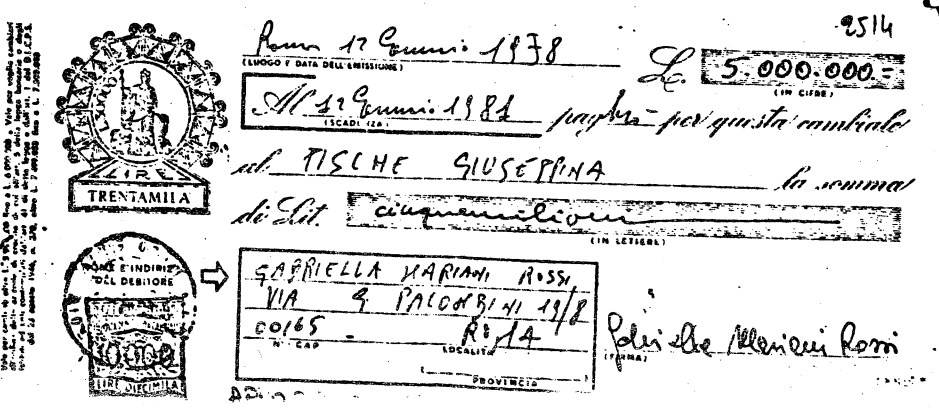 2514
Roma 12 Gennaio 1978
(LUOGO E DATA DELL'EMISSIONE)
L. 5.000.000=
(IN CIFRE)
Al 12 Gennaio 1981
pagherò per questa cambiale
al TISCHE GIUSEPPINA la somma
di Lit. cinquemilioni
(IN LETTERE)
LIRE
TRENTAMILA
NOME E INDIRIZZO
DEL DEBITORE
10.000
LIRE DIECIMILA
GABRIELLA MARIANI ROSSI
VIA G PALOMBINI 19/8
00165 - ROMA
N. CAP LOCALITÀ
PROVINCIA
Gabriella Mariani Rossi
(FIRMA)